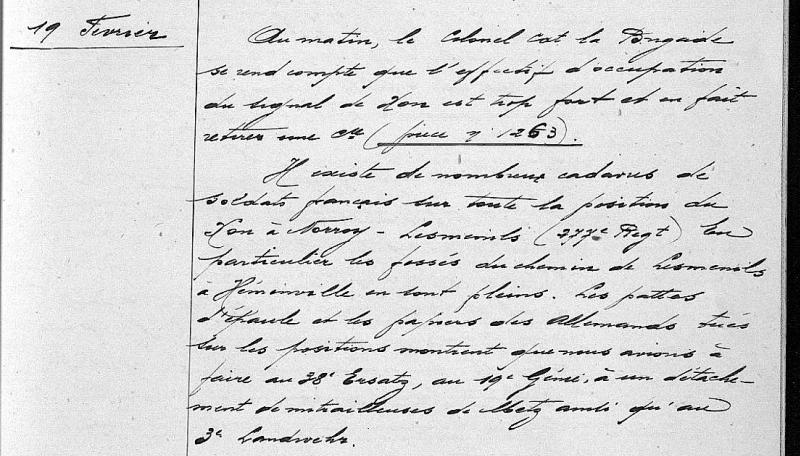 19 Fevrier
Au matin, le Colonel Cdt la Brigade
se rend compte que l'effectif d'occupation
du signal de Xon est trop fort et en fait
retirer une Cie (pièce n° 1263).
Il existe de nombreux cadavres de
soldats français sur toute la position du
Xon à Norroy - Lesmenils (277e Regt) En
particulier les fossés du chemin de Lesmenils
à Héminville en sont pleins. Les pattes
d'épaule et les papiers des Allemands tués
sur les positions montrent que nous avions à
faire au 38e Ersatz, au 19e Génie, à un détache-
ment de mitrailleuses de Metz ainsi qu'au
3e Landwehr.